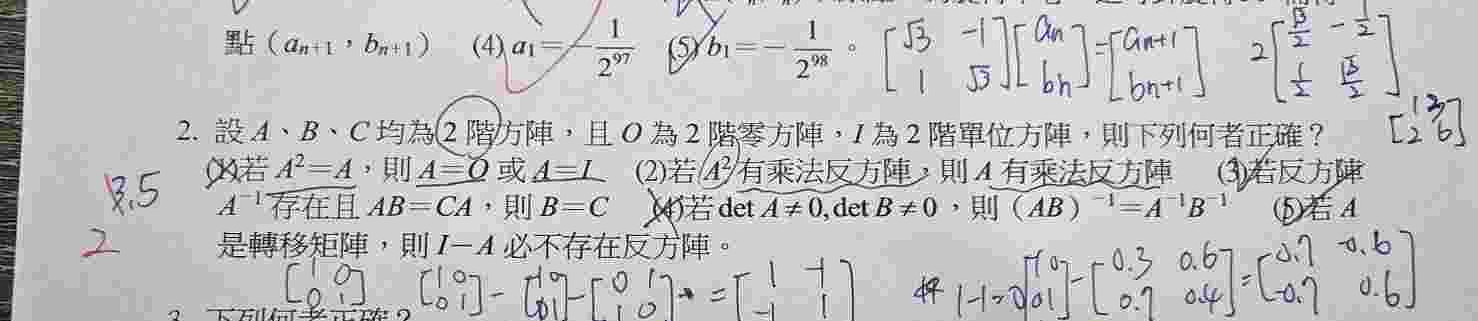 點（aₙ₊₁，bₙ₊₁） (4) a₁=－1/2⁹⁷ (5) b₁=－1/2⁹⁸。 [√3 -1; 1 √3][an; bn]=[an+1; bn+1] 2[√3/2 -1/2; 1/2 √3/2]
2. 設 A、B、C 均為 2 階方陣，且 O 為 2 階零方陣，I 為 2 階單位方陣，則下列何者正確？ [1 3; 2 6]
(1)若 A²=A，則 A=O 或 A=I (2)若 A² 有乘法反方陣，則 A 有乘法反方陣 (3)若反方陣
A⁻¹ 存在且 AB=CA，則 B=C (4)若 det A≠0, det B≠0，則（AB）⁻¹=A⁻¹B⁻¹ (5)若 A
是轉移矩陣，則 I－A 必不存在反方陣。
2
[1 0; 0 1] [1 0; 0 1] - [1 0; 0 1] - [0 1; 1 0] = [1 -1; -1 1] 1-1=0 [1 0; 0 1] - [0.3 0.6; 0.7 0.4] = [0.7 -0.6; -0.7 0.6]
3. 下列何者正確？